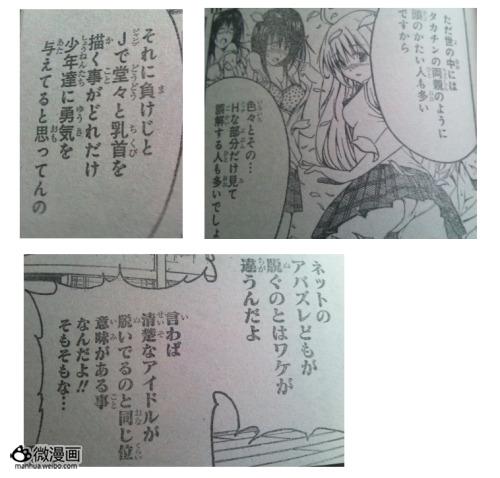 ただ世の中には
タカチンの両親のように
頭のかたい人も多い
ですから
色々とその…
Hな部分だけ見て
誤解する人も多いでしょ
それに負けじと
Jで堂々と乳首を
描く事がどれだけ
少年達に勇気を
与えてると思ってんの
ネットの
アバズレどもが
脱ぐのとはワケが
違うんだよ
言わば
清楚なアイドルが
脱いでるのと同じ位
意味がある事
なんだよ!!
そもそもな…
微漫画
manhua.weibo.com